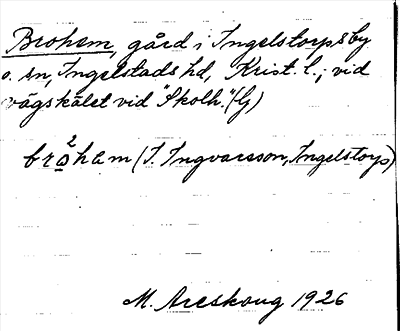 Brohem, gård i Ingelstorps by
o. sn, Ingelstads hd, Krist. l.; vid
vägskälet vid "Skolh." (G)
bro²hem (I. Ingvarsson, Ingelstorp)
M. Areskoug 1926